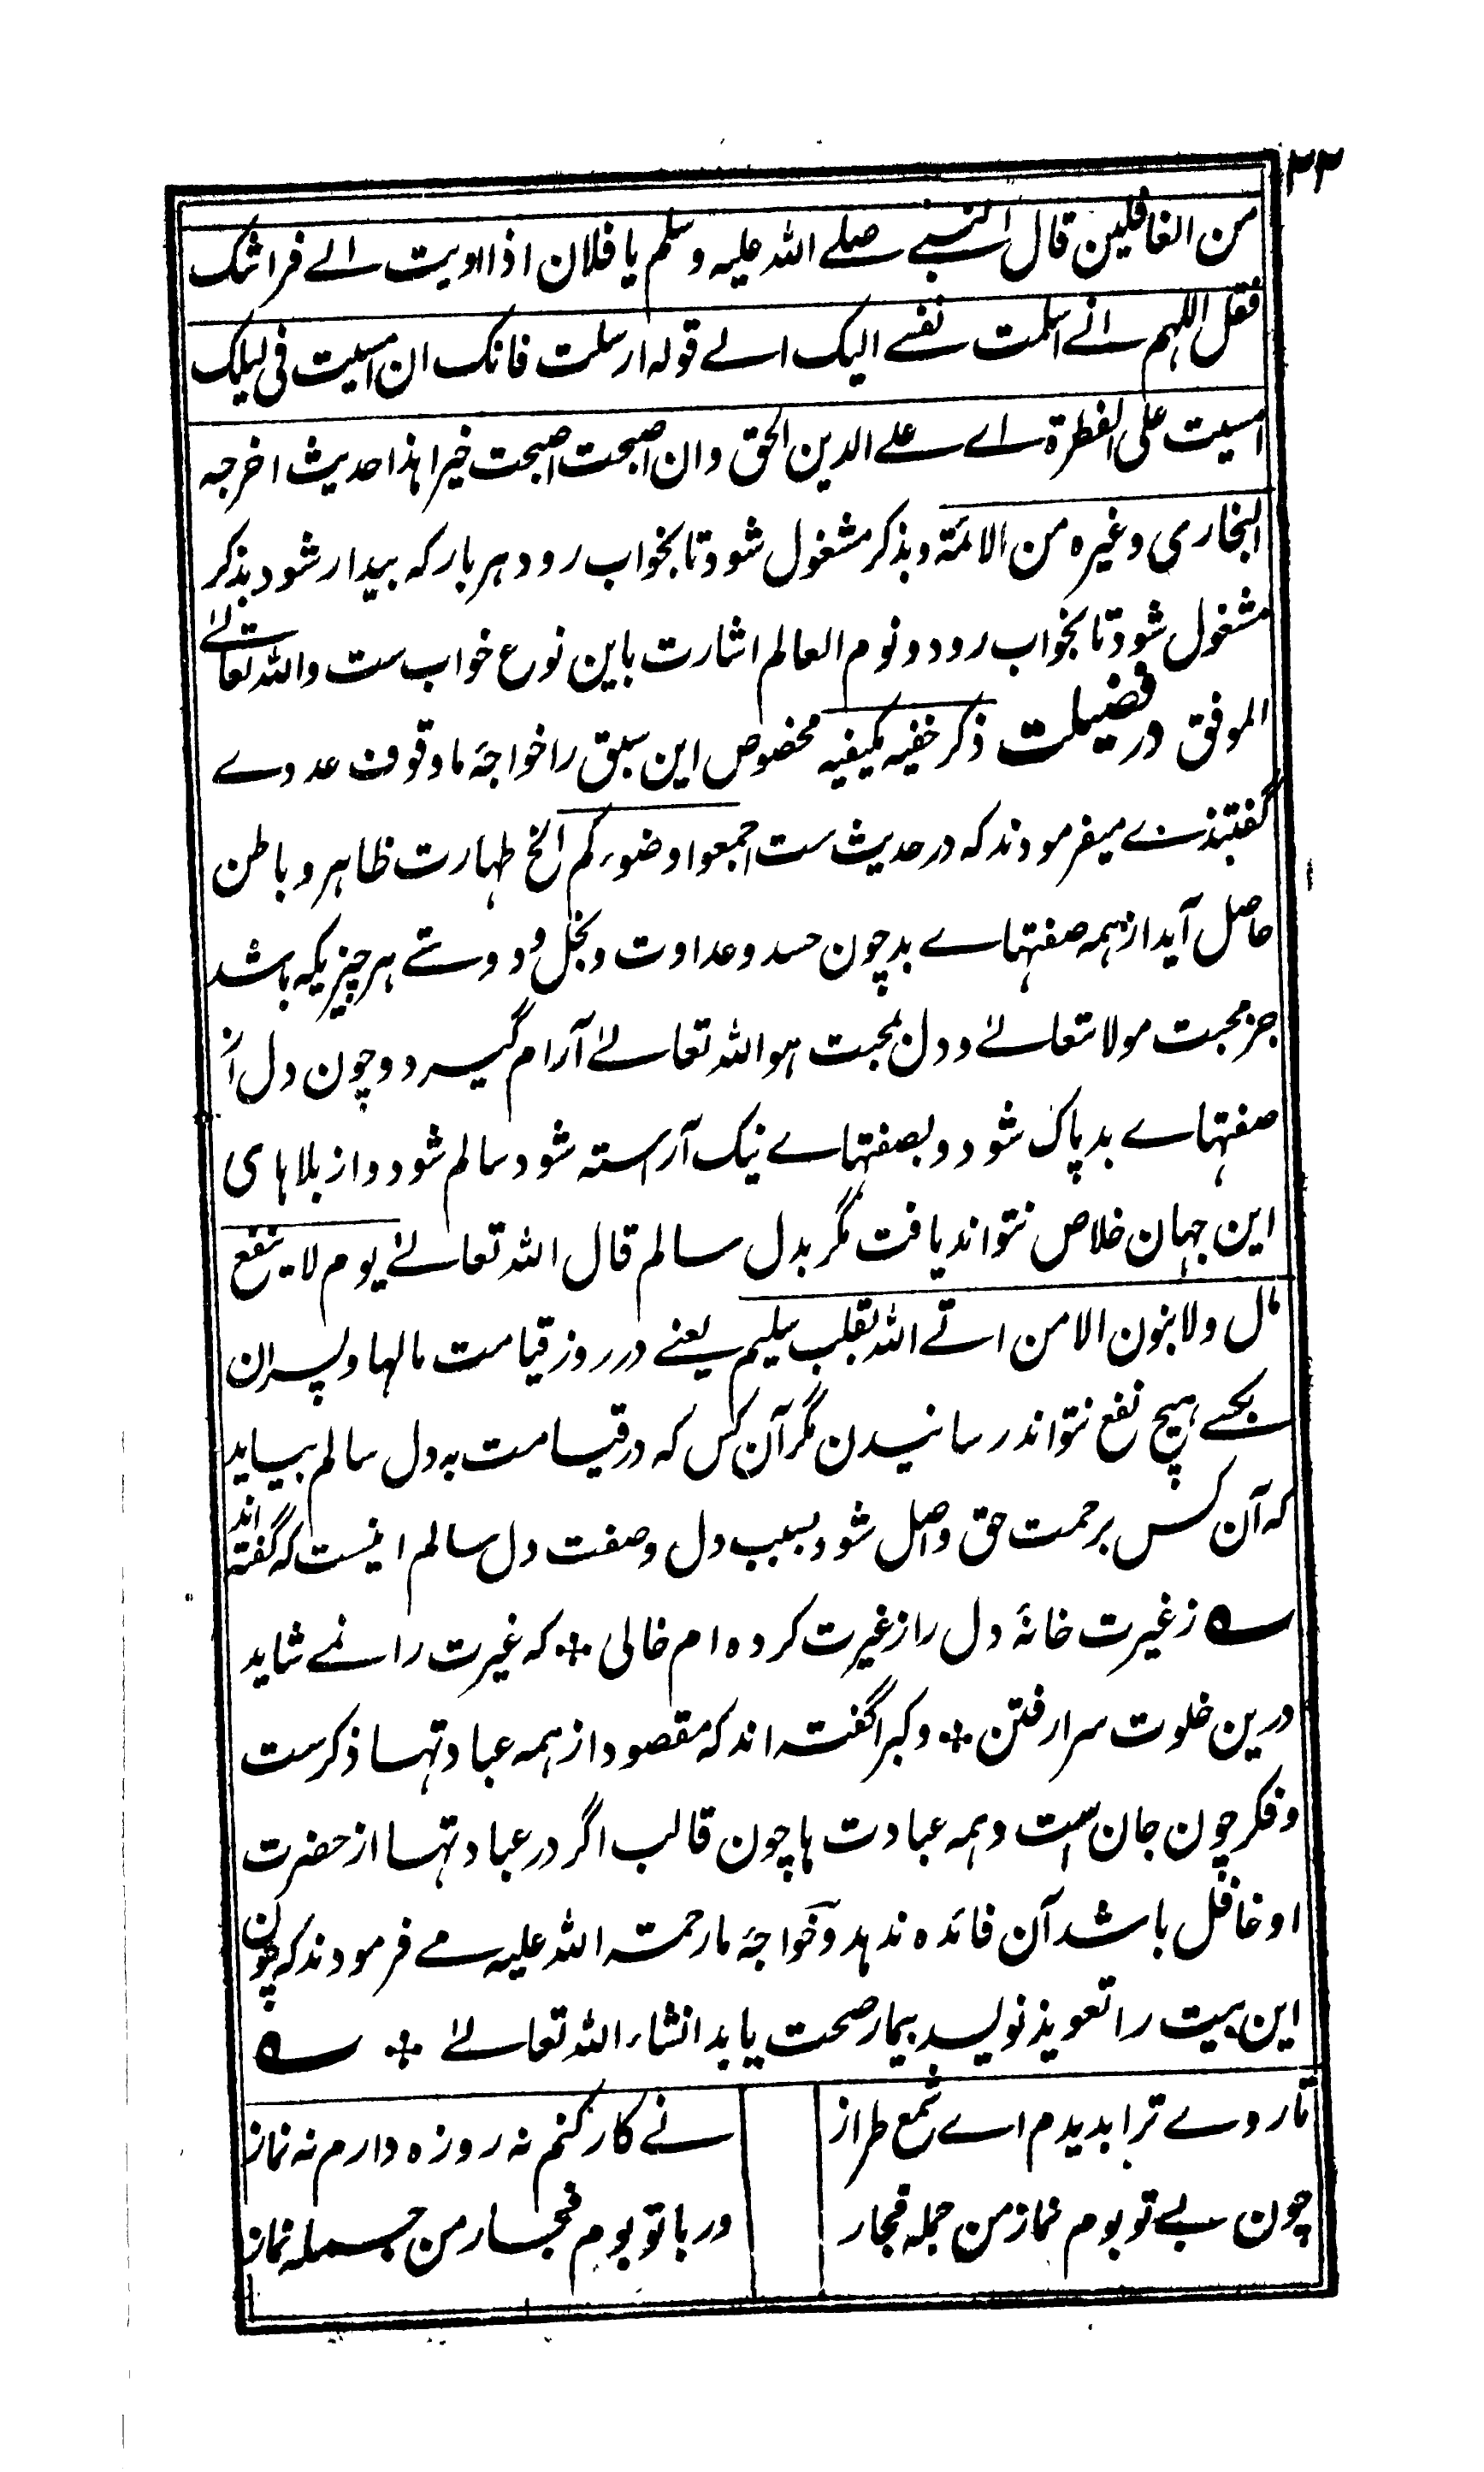 ۳۳
من الغافلین قال النبے صلے اللہ علیہ وسلم یا فلان اذا اویت الے فراشک
فقل اللہم انے اسلمت نفسے الیک الے قولہ ارسلت فانک ان امسیت فی لیلک
امسیت علی الفطرة اے علے الدین الحق وان اصبحت اصبحت خیرا ہذا حدیث اخرجہ
البخاری وغیرہ من الائمة و بذکر مشغول شود تا بخواب رود ہر بار کہ بیدار شود بذکر
مشغول شود تا بخواب رود و نوم العالم اشارت باین نوع خواب ست واللہ تعالےٰ
الموفق در فضیلت ذکر خفیہ بکیفیہ مخصوص این سبق را خواجۂ ما وقوف عددے
گفتندے میفرمودند کہ در حدیث ست اجمعوا وضوءکم الخ طہارت ظاہر و باطن
حاصل آید از ہمہ صفتہاے بد چون حسد و عداوت و بخل و دوستے ہر چیزیکہ باشد
جز محبت مولا تعالےٰ و دل بمحبت ہو اللہ تعالےٰ آرام گیرد و چون دل از
صفتہاے بد پاک شود و بصفتہاے نیک آراستہ شود سالم شود و از بلاہای
این جہان خلاص نتواند یافت مگر بدل سالم قال اللہ تعالےٰ یوم لا ینفع
مال ولا بنون الا من اتے اللہ بقلب سلیم یعنے در روز قیامت مالہا و پسران
بکسے ہیچ نفع نتواند رسانیدن مگر آن کس کہ در قیامت بہ دل سالم بیاید
کہ آن کس برحمت حق واصل شود بسبب دل و صفت دل سالم اینست کہ گفتہ اند
؎ ز غیرت خانۂ دل را ز غیرت کردہ ام خالی ÷ کہ غیرت را نمے شاید
درین خلوت سرا رفتن ÷ و کبرا گفتہ اند کہ مقصود از ہمہ عبادتہا ذکرست
و فکر چون جان ست و ہمہ عبادت ہا چون قالب اگر در عبادتہا از حضرت
او غافل باشد آن فائدہ ندہد و خواجۂ ما رحمتہ اللہ علیہ مے فرمودند کہ چون
این بیت را تعویذ نویسد بیمار صحت یابد انشاء اللہ تعالےٰ ÷ ؎
تا روے ترا بدیدم اے شمع طراز نے کار کنم نہ روزہ دارم نہ نماز
چون بے تو بوم نماز من جملہ فجار ور با تو بوم فجار من جملہ نماز